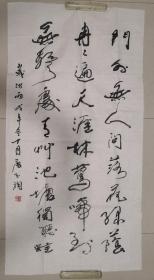 門外無人問落花綠蔭
冉冉遍天涯林鶯啼到
無聲處青草池塘獨聽蛙
歲次丙戌年冬十月